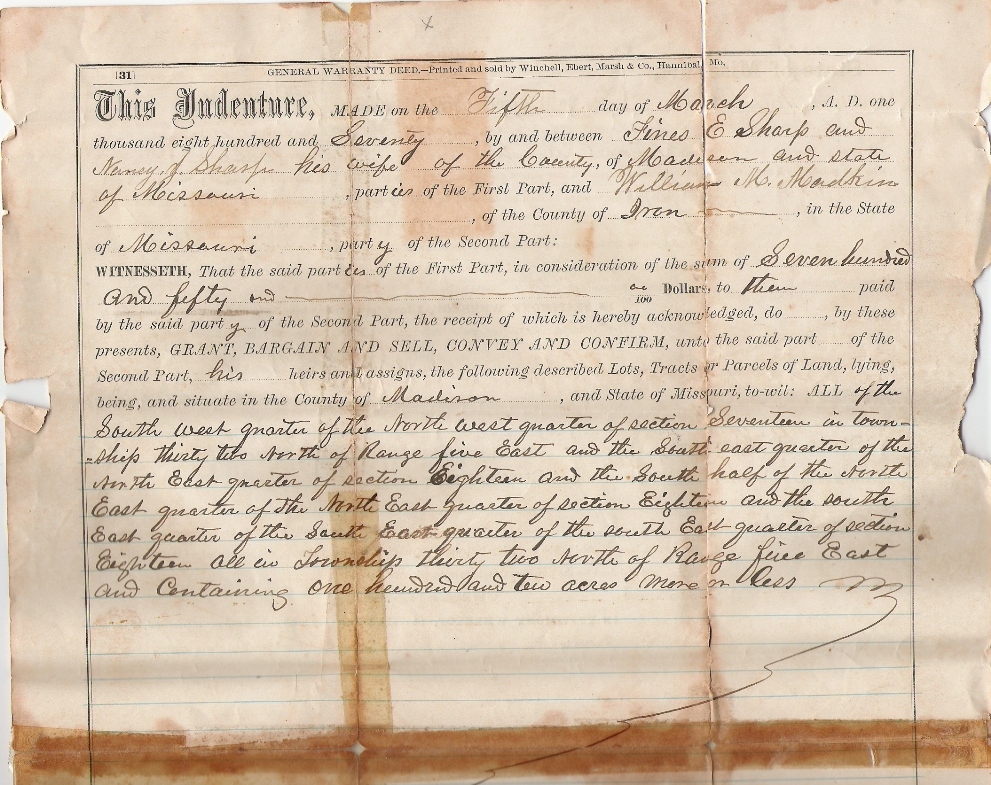 x
(31) GENERAL WARRANTY DEED.—Printed and sold by Winchell, Ebert, Marsh & Co., Hannibal, Mo.
This Indenture, MADE on the Fifth day of March , A. D. one
thousand eight hundred and Seventy , by and between Fines E Sharp and
Nancy Sharp his wife of the County, of Madison and state
of Missouri , parties of the First Part, and William M. Madkin
, of the County of Iron , in the State
of Missouri , party of the Second Part:
WITNESSETH, That the said parties of the First Part, in consideration of the sum of Seven hundred
and fifty and /100 Dollars, to them paid
by the said party of the Second Part, the receipt of which is hereby acknowledged, do , by these
presents, GRANT, BARGAIN AND SELL, CONVEY AND CONFIRM, unto the said part of the
Second Part, his heirs and assigns, the following described Lots, Tracts or Parcels of Land, lying,
being, and situate in the County of Madison , and State of Missouri, to-wit: ALL of the
South west quarter of the North west quarter of section Seventeen in town-
-ship thirty two North of Range five East and the South east quarter of the
North East quarter of section Eighteen and the South half of the North
East quarter of the North East quarter of section Eighteen and the south
East quarter of the South East quarter of the south East quarter of section
Eighteen all in Township thirty two North of Range five East
and Containing one hundred and ten acres more or less